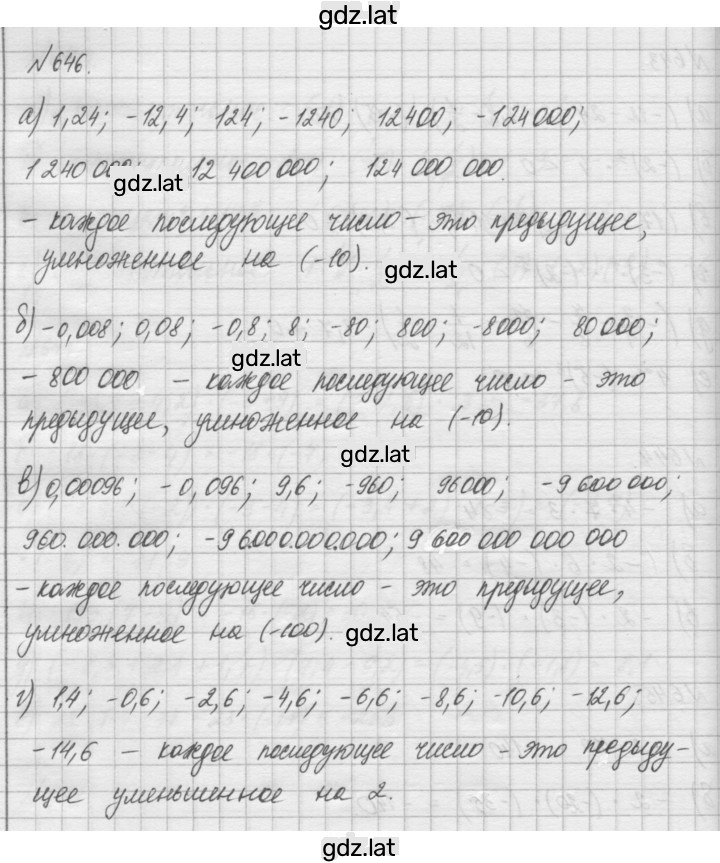 gdz.lat
№646.
а) 1,24; -12,4; 124; -1240; 12400; -124000;
1 240 000; 12 400 000; 124 000 000.
gdz.lat
– каждое последующее число – это предыдущее,
умноженное на (-10).
gdz.lat
б) -0,008; 0,08; -0,8; 8; -80; 800; -8000; 80000;
gdz.lat
- 800 000 – каждое последующее число – это
предыдущее, умноженное на (-10).
gdz.lat
в) 0,00096; -0,096; 9,6; -960; 96000; -9 600 000;
960.000.000; -96.000.000.000; 9 600 000 000 000
– каждое последующее число – это предидущее,
умноженное на (-100).
gdz.lat
г) 1,4; -0,6; -2,6; -4,6; -6,6; -8,6; -10,6; -12,6;
-14,6 – каждое последующее число – это предыду-
щее уменьшенное на 2.
gdz.lat